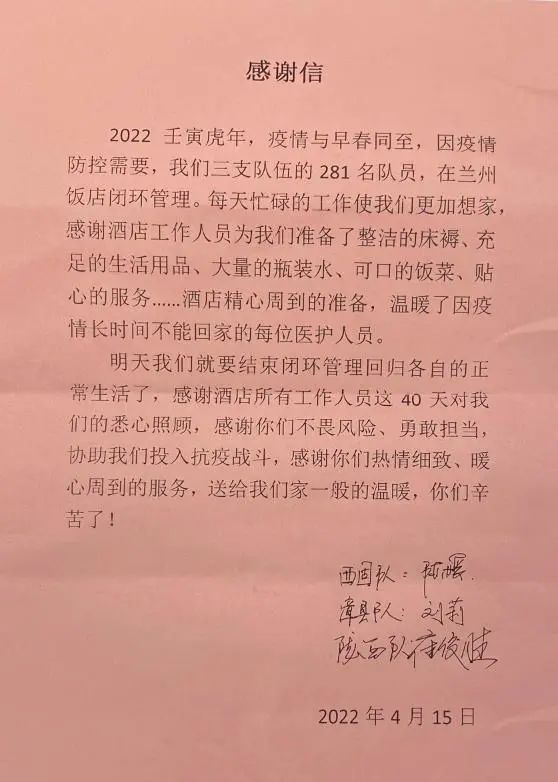 感谢信
2022 壬寅虎年，疫情与早春同至，因疫情
防控需要，我们三支队伍的 281 名队员，在兰州
饭店闭环管理。每天忙碌的工作使我们更加想家，
感谢酒店工作人员为我们准备了整洁的床褥、充
足的生活用品、大量的瓶装水、可口的饭菜、贴
心的服务……酒店精心周到的准备，温暖了因疫
情长时间不能回家的每位医护人员。
明天我们就要结束闭环管理回归各自的正
常生活了，感谢酒店所有工作人员这 40 天对我
们的悉心照顾，感谢你们不畏风险、勇敢担当，
协助我们投入抗疫战斗，感谢你们热情细致、暖
心周到的服务，送给我们家一般的温暖，你们辛
苦了！
西固队：
漳县队：刘莉
陇西队
2022 年 4 月 15 日